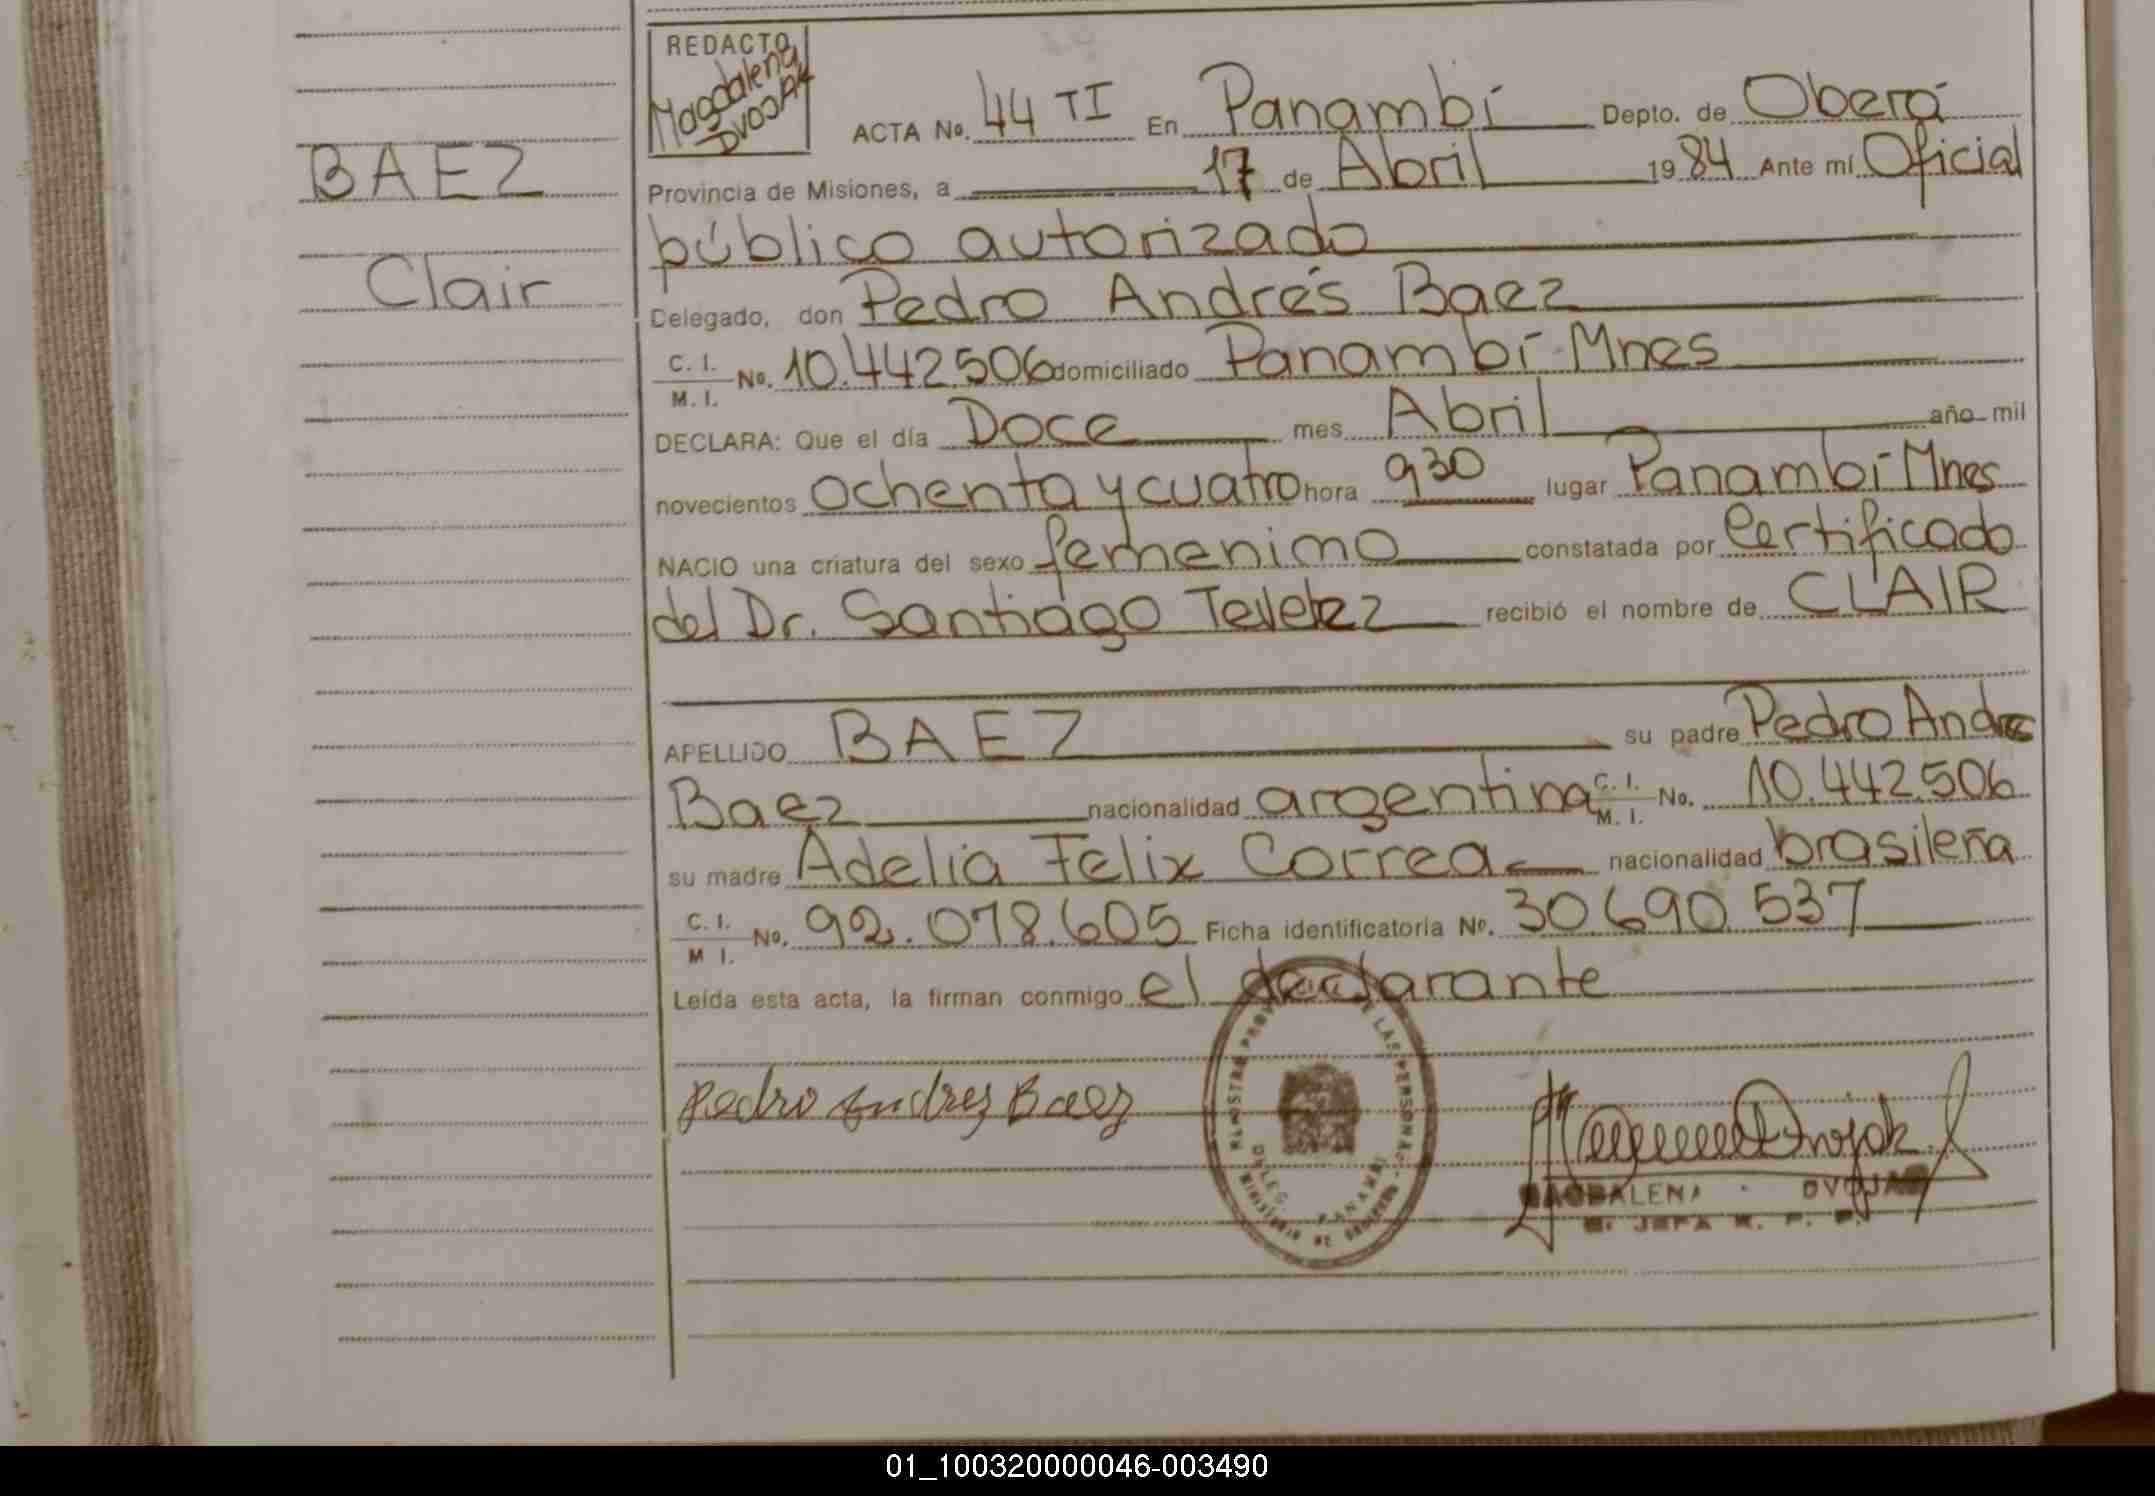 REDACTO
Magdalena
DVOJAK
ACTA No. 44 TI En Panambí Depto. de Oberá
BAEZ
Provincia de Misiones, a 17 de Abril 1984 Ante mí Oficial
público autorizado
Clair
Delegado, don Pedro Andrés Baez
C. I.
M. I. No. 10.442.506 domiciliado Panambí-Mnes
DECLARA: Que el día Doce mes Abril año mil
novecientos ochenta y cuatro hora 930 lugar Panambí-Mnes
NACIO una criatura del sexo femenino constatada por Certificado
del Dr. Santiago recibió el nombre de CLAIR
APELLIDO BAEZ su padre Pedro Andres
Baez nacionalidad argentina C. I. M. I. No. 10.442.506
su madre Adelia Felix Correa nacionalidad brasileña
C. I.
M I. No. 92.078.605 Ficha identificatoria No. 30.690.537
Leída esta acta, la firman conmigo el declarante
Pedro Andres Baez
DE LAS PERSONAS
DELEG. PANAMBI
MINISTERIO DE GOBIERNO
MAGDALENA DVOJAK
JEFA R. P. P.
01_100320000046-003490